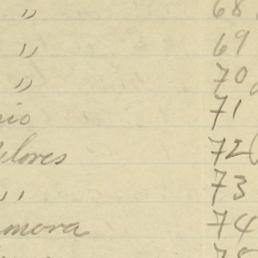 " 68
" 69
" 70
nio 71
elores 72
" 73
mora 74
75